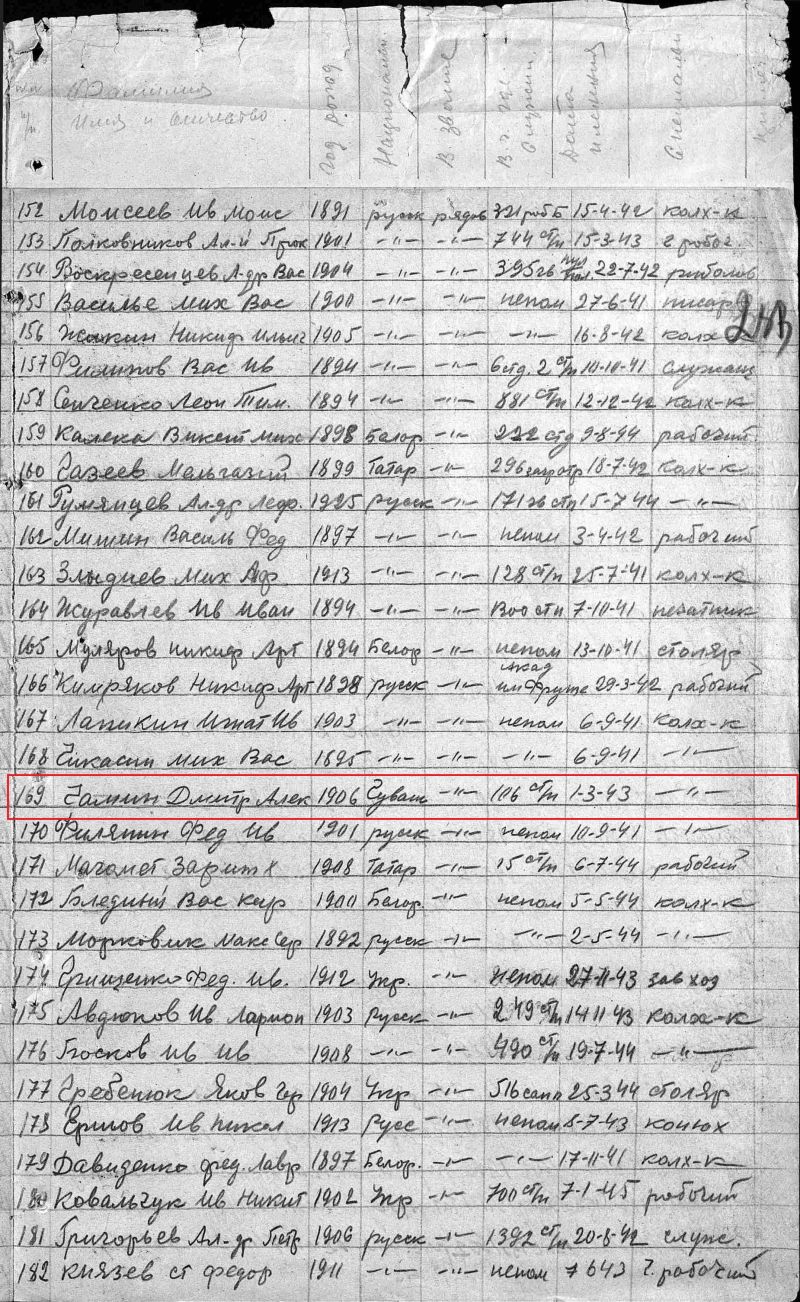 Фамилия Год рожд Национальн. В. звание В. ч. где служил Дата пленения Специальн
имя и отчество
152 Моисеев Ив Моис 1891 русск рядов 321 роб Б 15-4-42 колх-к
153 Полковников Ал-й Прок 1901 -"- -"- 744 ст/п 15-3-43 г. рабоч.
154 Воскресенцев А-др Вас 1904 -"- -"- 395 гв 22-7-42 рыболов
155 Василье Мих Вас 1900 -"- -"- непом 27-6-41 писарь
156 Жакин Никиф Ильич 1905 -"- -"- -"- 16-8-42 колх-к
157 Филипов Вас Ив 1894 -"- -"- 6 стд. 2 ст/п 10-10-41 служащ
158 Сенченко Леон Тим. 1894 -"- -"- 881 ст/п 12-12-42 колх-к
159 Калека Викент Мих 1898 Белор -"- 222 стд 9-8-44 рабочий
160 Газеев Мельгазий 1899 Татар -"- 296 загр отр 18-7-42 колх-к
161 Румянцев Ал-др Леф. 1925 русск -"- 171 гв стп 15-7-44 -"-
162 Мишин Василь Фед 1897 -"- -"- непом 3-4-42 рабочий
163 Злыднев Мих Аф 1913 -"- -"- 128 ст/п 25-7-41 колх-к
164 Журавлев Ив Иван 1894 -"- -"- 800 стп 7-10-41 печатник
165 Муляров Никиф Арт 1894 Белор -"- непом 13-10-41 столяр
166 Кимряков Никиф Арт 1898 русск -"- акад им Фрунзе 29-3-42 рабочий
167 Лапикин Игнат Ив 1903 -"- -"- непом 6-9-41 колх-к
168 Чикасин Мих Вас 1895 -"- -"- -"- 6-9-41 -"-
169 Галкин Дмитр Алек 1906 Чуваш -"- 106 ст/п 1-3-43 -"-
170 Филяпин Фед Ив 1901 русск -"- непом 10-9-41 -"-
171 Магомет Зарип Х 1908 Татар -"- 15 ст/п 6-7-44 рабочий
172 Бледный Вас Кир 1900 Белор. -"- непом 5-5-44 колх-к
173 Морковик Макс Сер 1892 русск -"- -"- 2-5-44 -"-
174 Грищенко Фед. Ив. 1912 Укр. -"- непом 27-11-43 завхоз
175 Авдюков Ив Ларион 1903 русск -"- 249 ст/п 14 11 43 колх-к
176 Босков Ив Ив 1908 -"- -"- 490 ст/п 19-7-44 -"-
177 Гребенюк Яков Гер 1904 Укр -"- 516 сапп 25-3 44 столяр
178 Ершов Ив Никол 1913 Русс -"- непом 8-7-43 конюх
179 Давиденко фед. Лавр 1897 Белор. -"- -"- 17-11-41 колх-к
180 Ковальчук Ив Никит 1902 Укр -"- 700 ст/п 7-1-45 рабочий
181 Григорьев Ал-др Петр 1906 русск -"- 1392 ст/п 20-8-42 служ.
182 Князев ст федор 1911 -"- -"- непом 7 6 43 г. рабочий